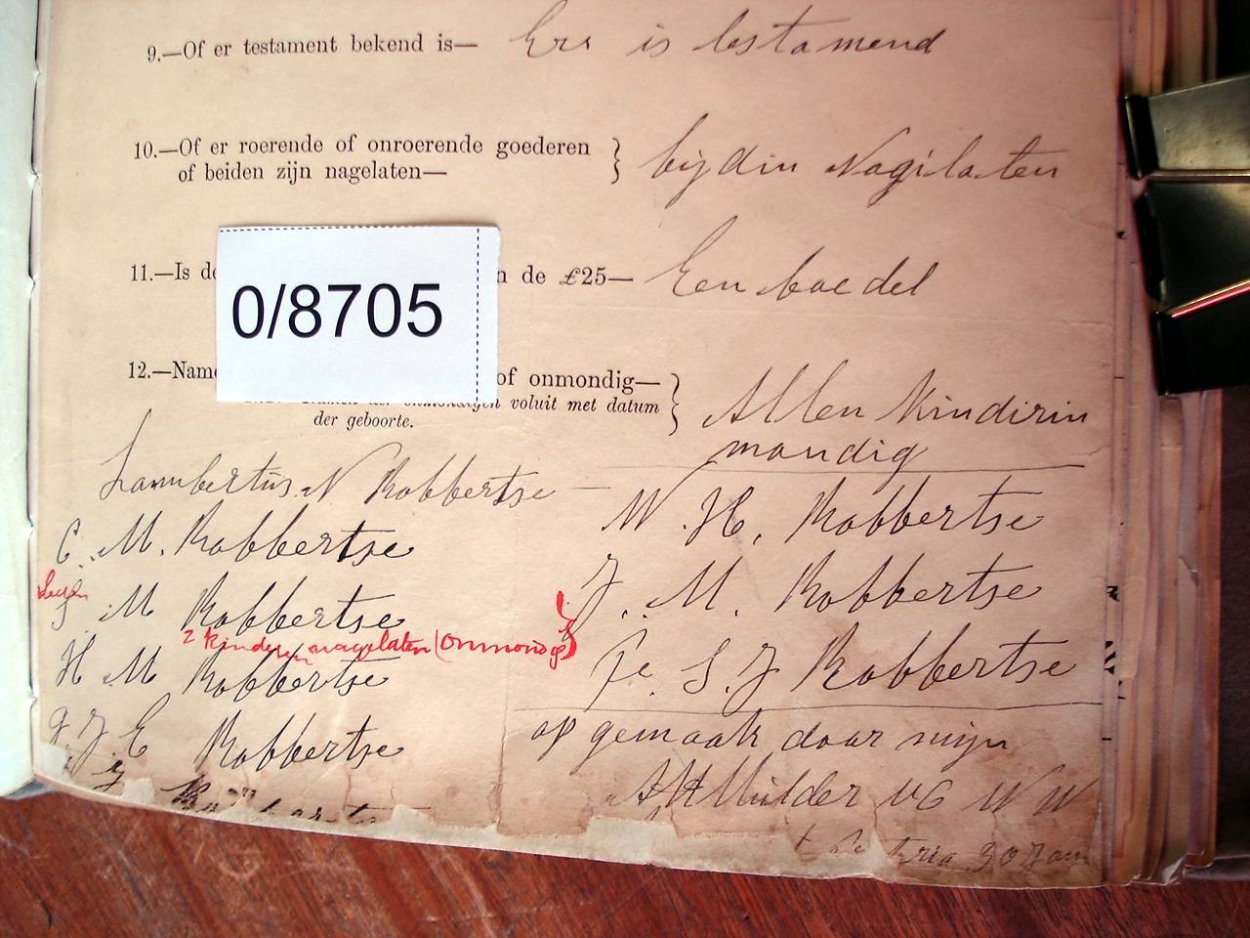 9.—Of er testament bekend is— Ers is testamend
10.—Of er roerende of onroerende goederen
of beiden zijn nagelaten— bijdin Nagilaten
11.—Is de n de £25— Een boedel
0/8705
12.—Name of onmondig—
voluit met datum
der geboorte.
Allen Kindirin
mondig
Lambertus N Robbertse —
W. H. Robbertse
C. M. Robbertse
J. M. Robbertse
M Robbertse
2 kinderen nagelaten (onmondig)
H M Robbertse
S. J Robbertse
J E Robbertse
op gemaak door mijn
AH Mulder VC W W
30 Jan